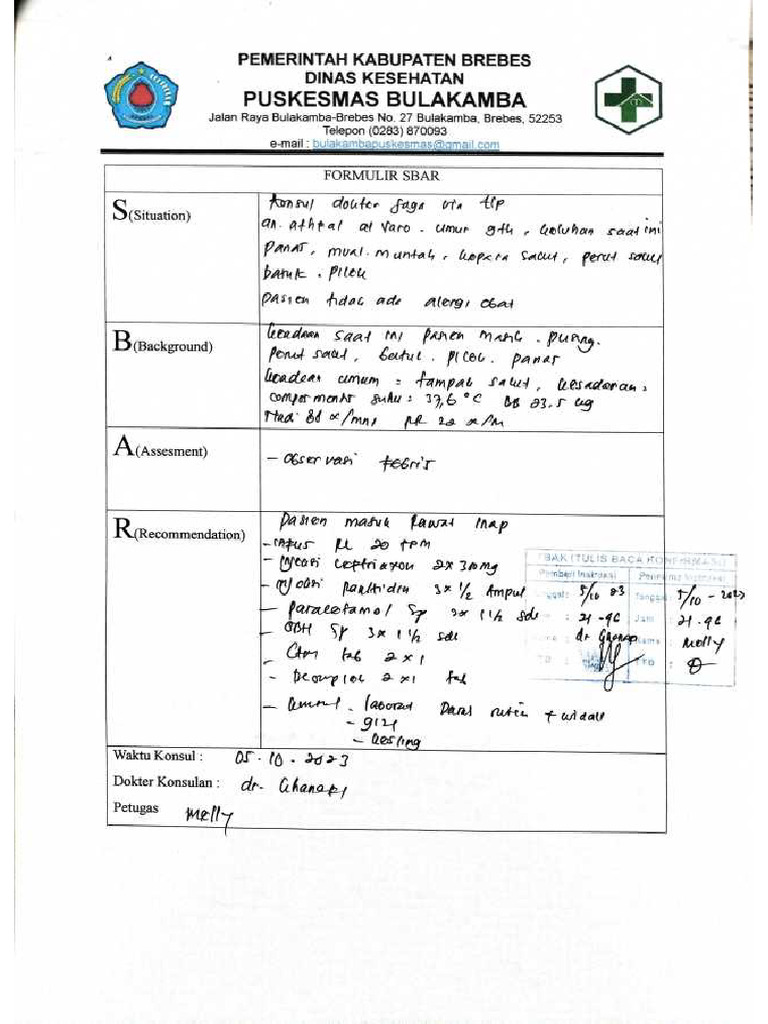 PEMERINTAH KABUPATEN BREBES
DINAS KESEHATAN
PUSKESMAS BULAKAMBA
Jalan Raya Bulakamba-Brebes No. 27 Bulakamba, Brebes, 52253
Telepon (0283) 870093
e-mail : bulakambapuskesmas@gmail.com
FORMULIR SBAR
S(Situation)
Konsul dokter jaga via tlp
an. athtal alvaro . umur 9th , keluhan saat ini
panas, mual . muntah, kepala sakit, perut sakit
batuk . pilek
pasien tidak ada alergi obat
B(Background)
keadaan saat ini pasien . pusing.
perut sakit, batuk . pilek . panas
keadaan umum = tampak sakit, kesadaran =
composmentis suhu = 37,6 °C BB 23.5 kg
Nadi 80 x/mnt RR 22 x/m
A(Assesment)
- observasi febris
R(Recommendation)
pasien masuk Rawat Inap
- infus RL 20 tpm
- injeksi ceftriaxon 2x310mg
- injeksi ranitidin 3x1/2 Ampul
- paracetamol Sy 3x1 1/2 sdt
- OBH Sy 3x1 1/2 sdt
- Ctm tab 2x1
- 2x1 tab
- laborat Darah rutin + widal
- gizi
- kesling
TBAK (TULIS BACA KONFIRMASI)
Pemberi Instruksi Penerima Instruksi
Tanggal: 5/10 23 Tanggal: 5/10-2023
Jam : 21-
Jam : 21-
Nama : dr Nama : Melly
TTD : TTD :
Waktu Konsul : 05.10.2023
Dokter Konsulan : dr.
Petugas Melly